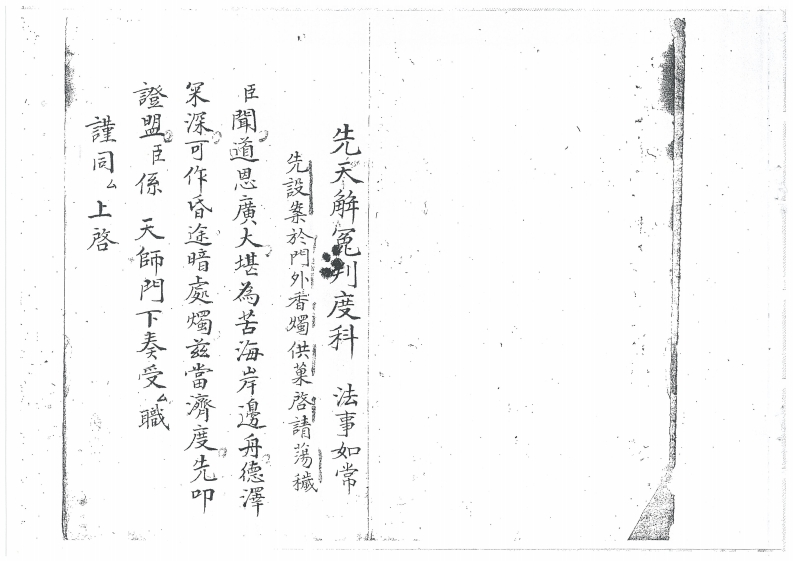 先天解冤判度科　法事如常
先設案於門外香燭供菓啓請蕩穢
臣聞道恩廣大堪為苦海岸邊舟德澤
罙深可作昏途暗處燭兹當濟度先叩
證盟臣係　天師門下奏受厶職
謹同厶上啓